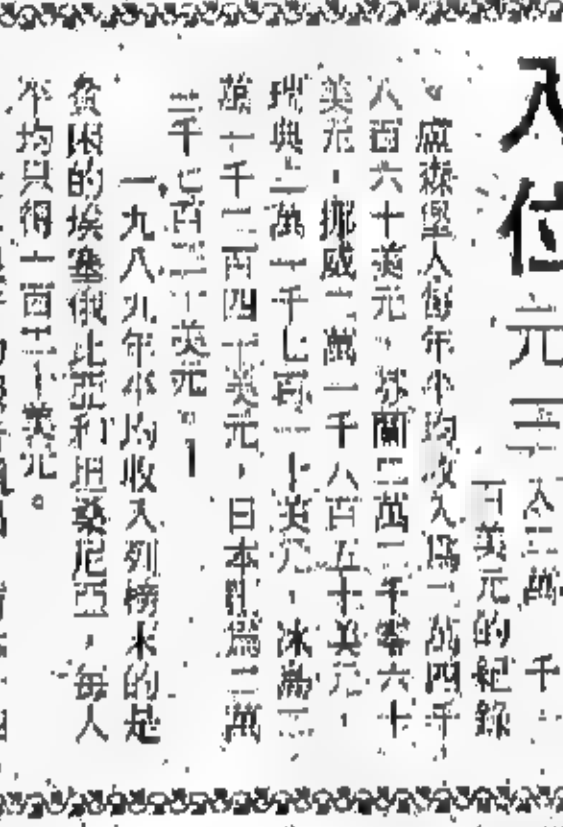 入位元三
入三萬 千
百美元的紀錄
盧森堡人每年平均收入為二萬四千
八百六十美元,芬蘭二萬二千零六十
美元,挪威二萬一千八百五十美元,
瑞典二萬一千七百一十美元,冰島二
萬一千二百四十美元,日本則為二萬
三千七百三十美元。
一九八九年平均收入列榜末的是
貧困的埃塞俄比亞和坦桑尼亞,每人
平均只得一百二十美元。